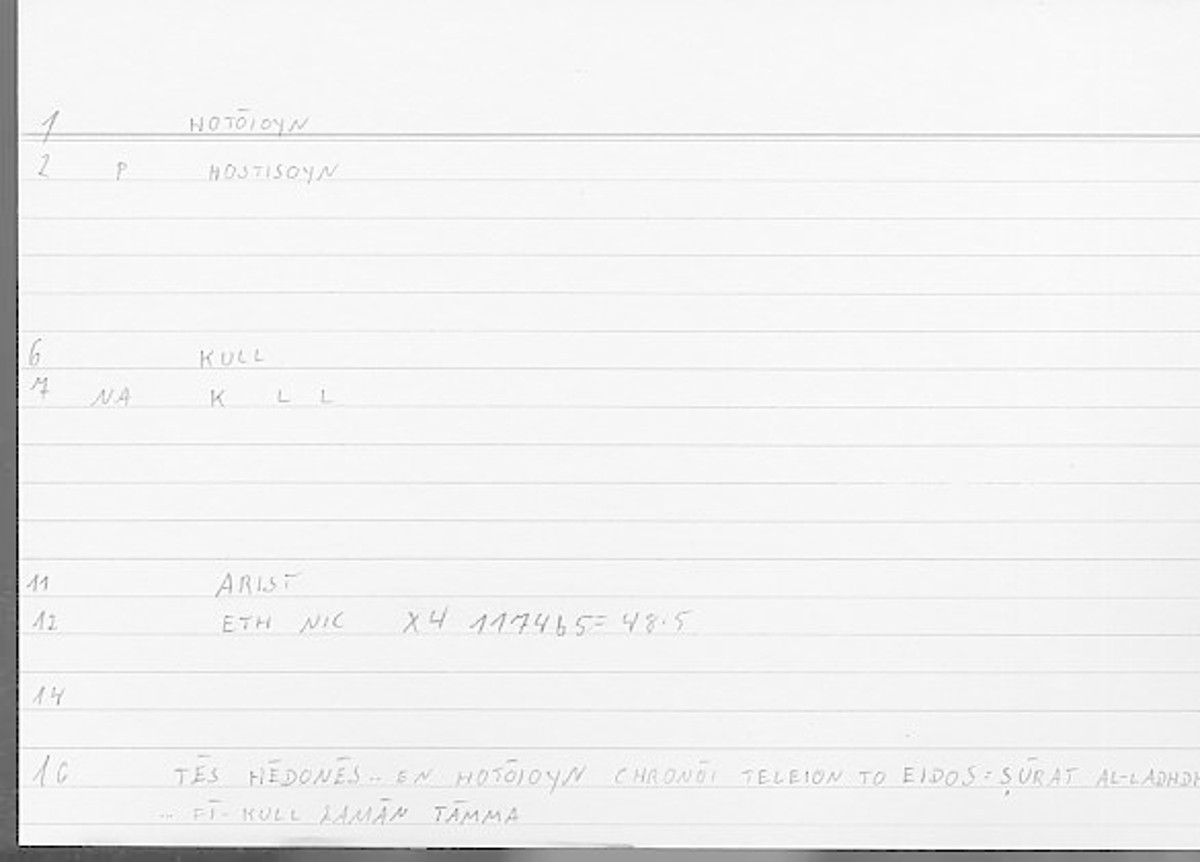 1 HOTŌIOYN
2 P HOSTISOYN
6 KULL
7 NA K L L
11 ARIST
12 ETH NIC X4 1174b5= 48.5
14
16 TĒS HĒDONĒS.. EN HOTŌIOYN CHRONŌI TELEION TO EIDOS = ṢŪRAT AL-LADHDH
... FĪ KULL ZAMĀN TĀMMA